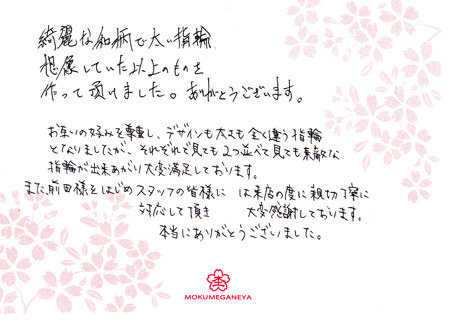 綺麗な和柄で太い指輪
想像していた以上のものを
作って頂けました。ありがとうございます。
お互いの好みを尊重し、デザインも太さも全く違う指輪
となりましたが、それぞれで見ても2つ並べて見ても素敵な
指輪が出来あがり大変満足しております。
また、前田様をはじめスタッフの皆様に は来店の度に親切丁寧に
対応して頂き 大変感謝しております。
本当にありがとうございました。
MOKUMEGANEYA